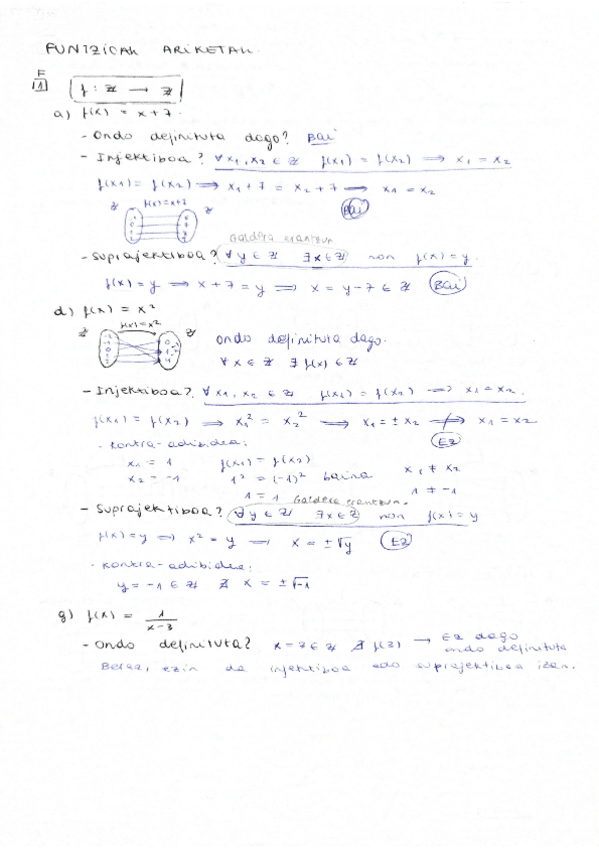 FUNTZIOAK ARIKETAK.
F
1 f: ℤ → ℤ
a) f(x) = x+7.
- Ondo definituta dago? BAI
- Injektiboa? ∀x₁,x₂ ∈ ℤ f(x₁) = f(x₂) ⟹ x₁ = x₂
f(x₁) = f(x₂) ⟹ x₁+7 = x₂+7 ⟹ x₁ = x₂
ℤ f(x)=x+7 ℤ
BAI
Galdera erantzun
- Suprajektiboa? ∀y ∈ ℤ ∃x∈ℤ non f(x)=y.
f(x)=y ⟹ x+7=y ⟹ x = y-7 ∈ ℤ BAI
d) f(x) = x²
ℤ f(x)=x² ℤ
Ondo definituta dago.
∀x ∈ ℤ ∃ f(x) ∈ ℤ
- Injektiboa? ∀x₁,x₂ ∈ ℤ f(x₁) = f(x₂) ⟹ x₁=x₂.
f(x₁) = f(x₂) ⟹ x₁² = x₂² ⟹ x₁ = ±x₂ ⇏ x₁ = x₂
EZ
· Kontra-adibidea:
x₁ = 1 f(x₁) = f(x₂) x₁ ≠ x₂
x₂ = -1 1² = (-1)² baina
1 = 1 1 ≠ -1
Galdera erantzun.
- Suprajektiboa? ∀y ∈ ℤ ∃x∈ℤ non f(x)=y
f(x)=y ⟹ x² = y ⟹ x = ±√y EZ
· Kontra-adibidea:
y = -1 ∈ ℤ ∄ x = ±√-1
g) f(x) = 1/(x-3)
- Ondo definituta? x=3 ∈ ℤ ∄ f(3) → Ez dago
ondo definituta
Beraz, ezin da injektiboa edo suprajektiboa izan.